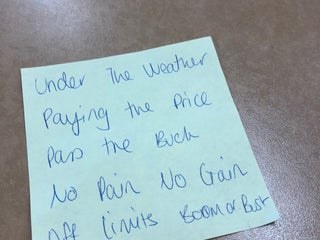 Under The Weather
Paying the Price
Pass the Buck
No Pain No Gain
Off limits Boom or Bust